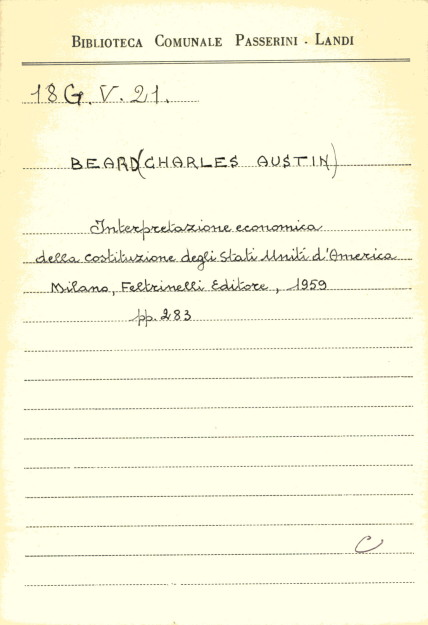 BIBLIOTECA COMUNALE PASSERINI - LANDI
18 G. V. 21.
BEARD (CHARLES AUSTIN)
Interpretazione economica
della costituzione degli Stati Uniti d'America
Milano, Feltrinelli Editore, 1959
pp. 283
C